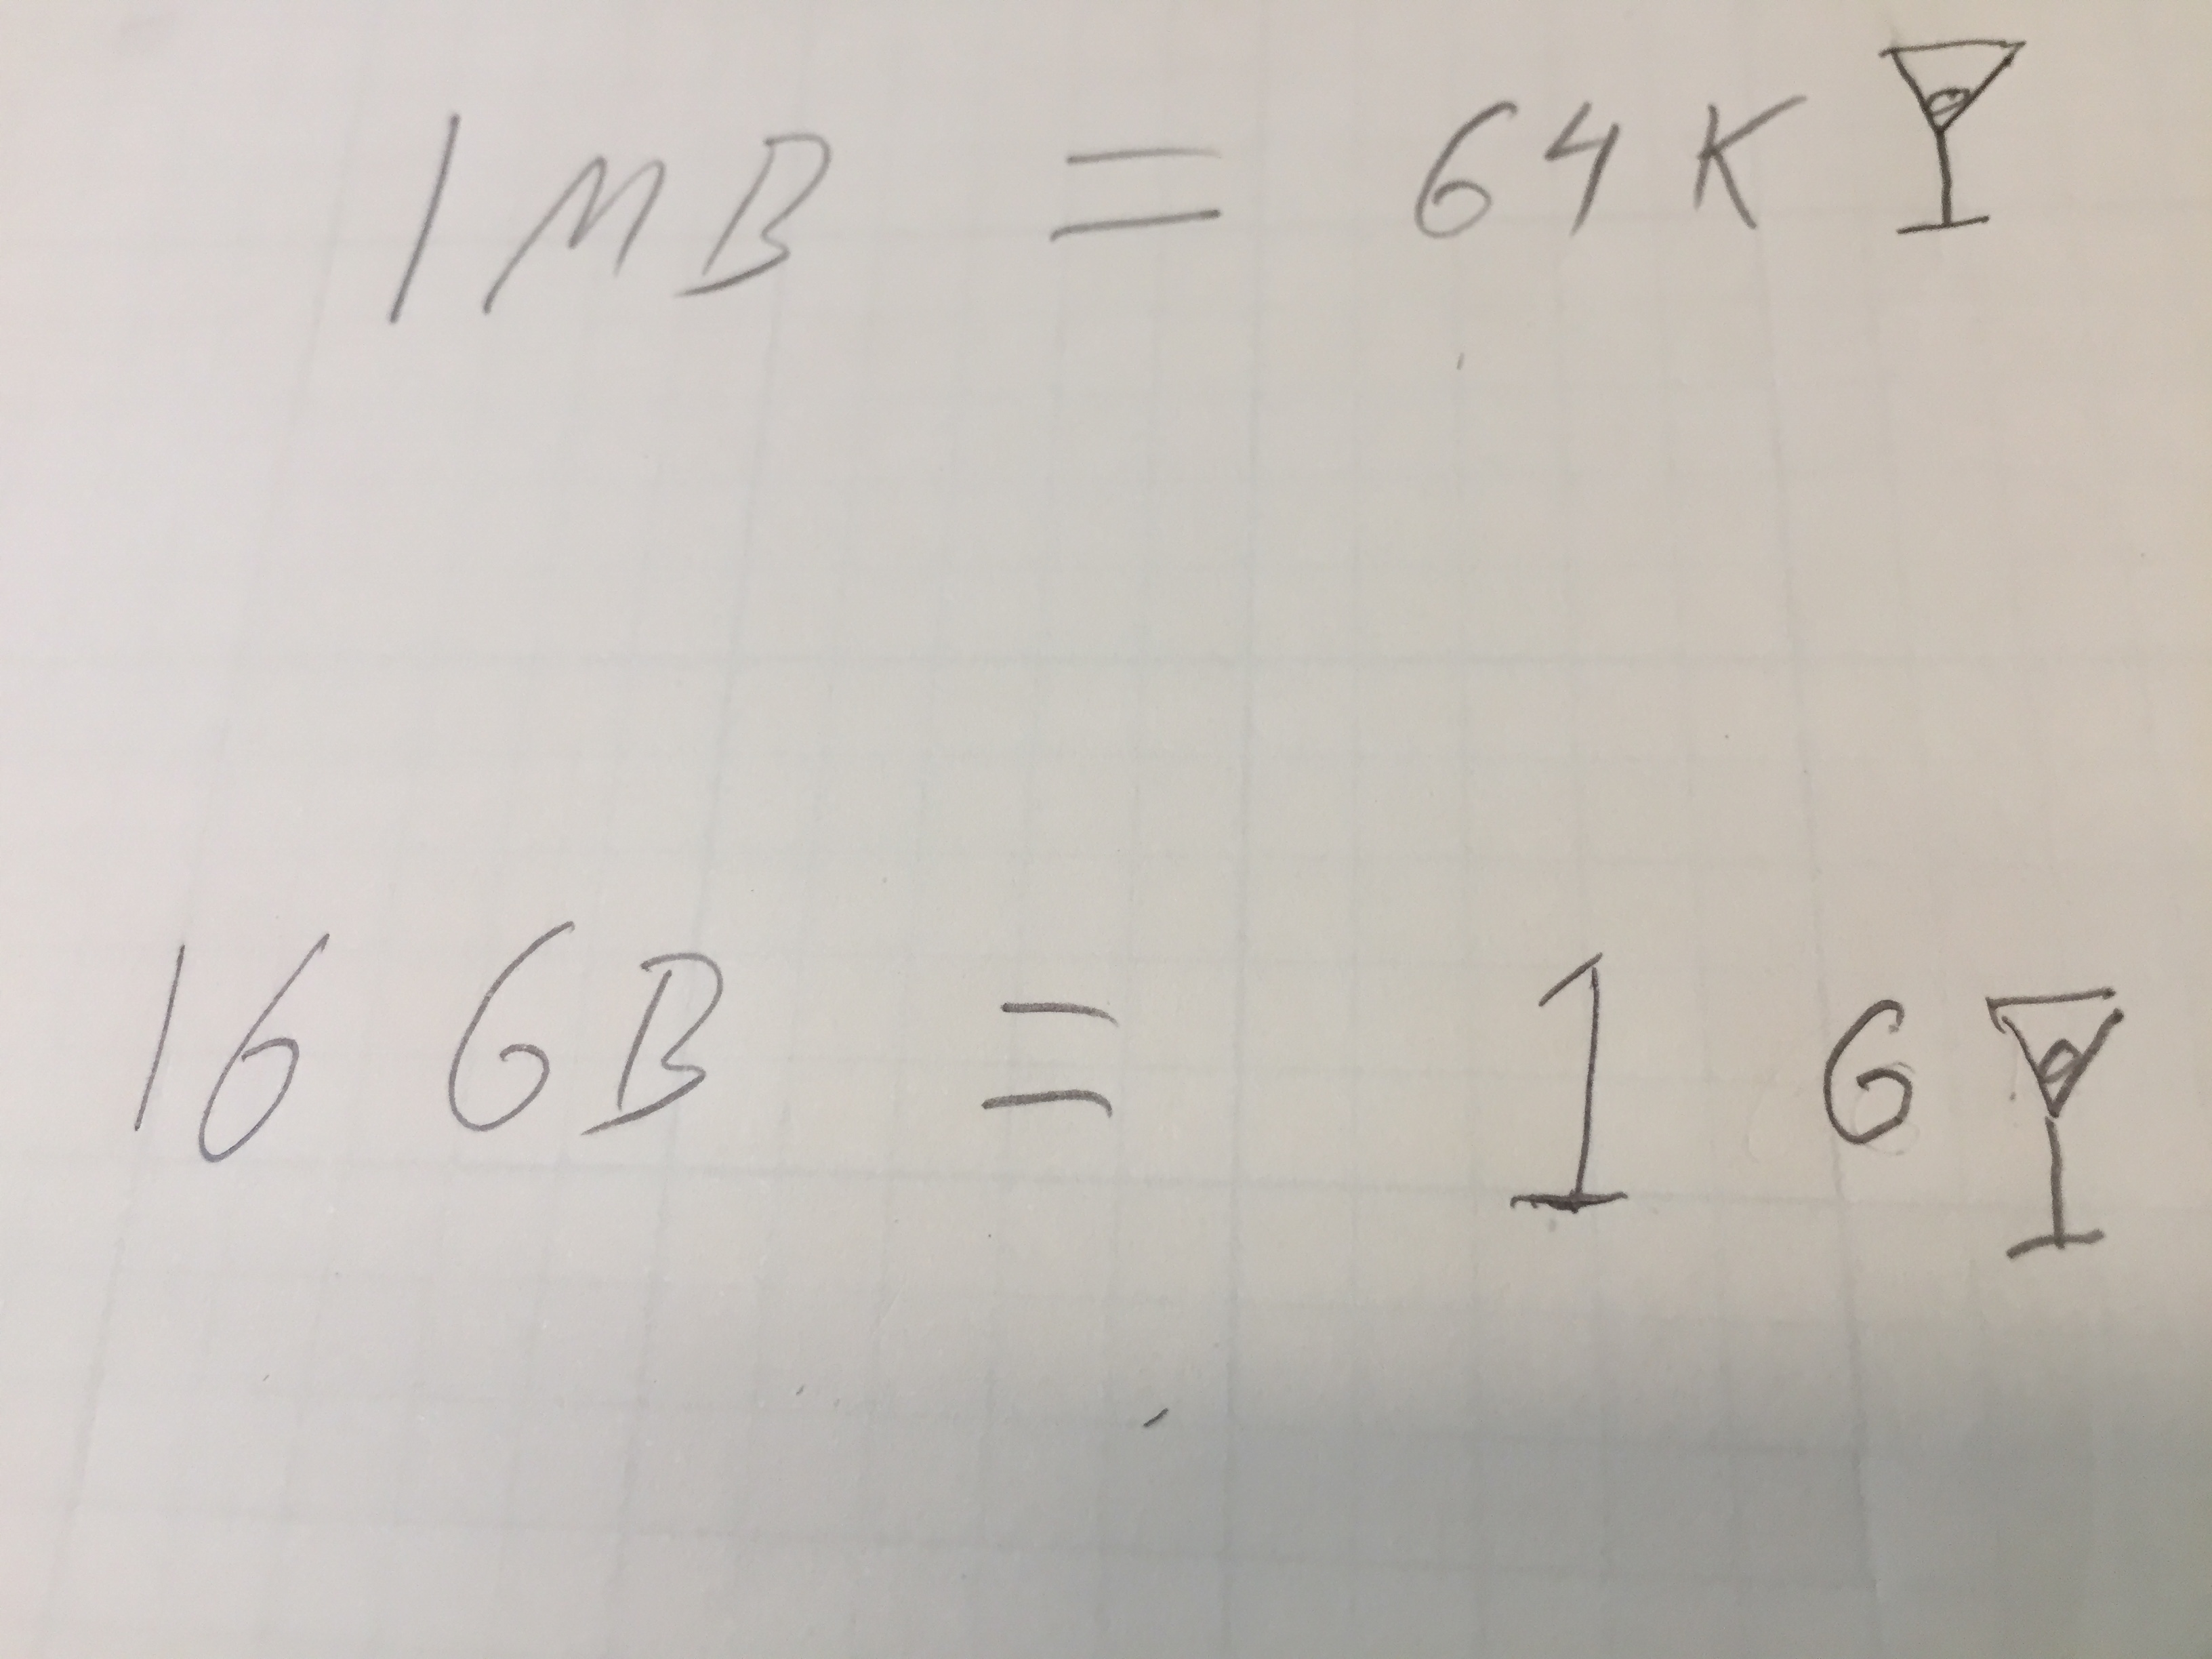 1 MB = 64 K
16 GB = 1 G